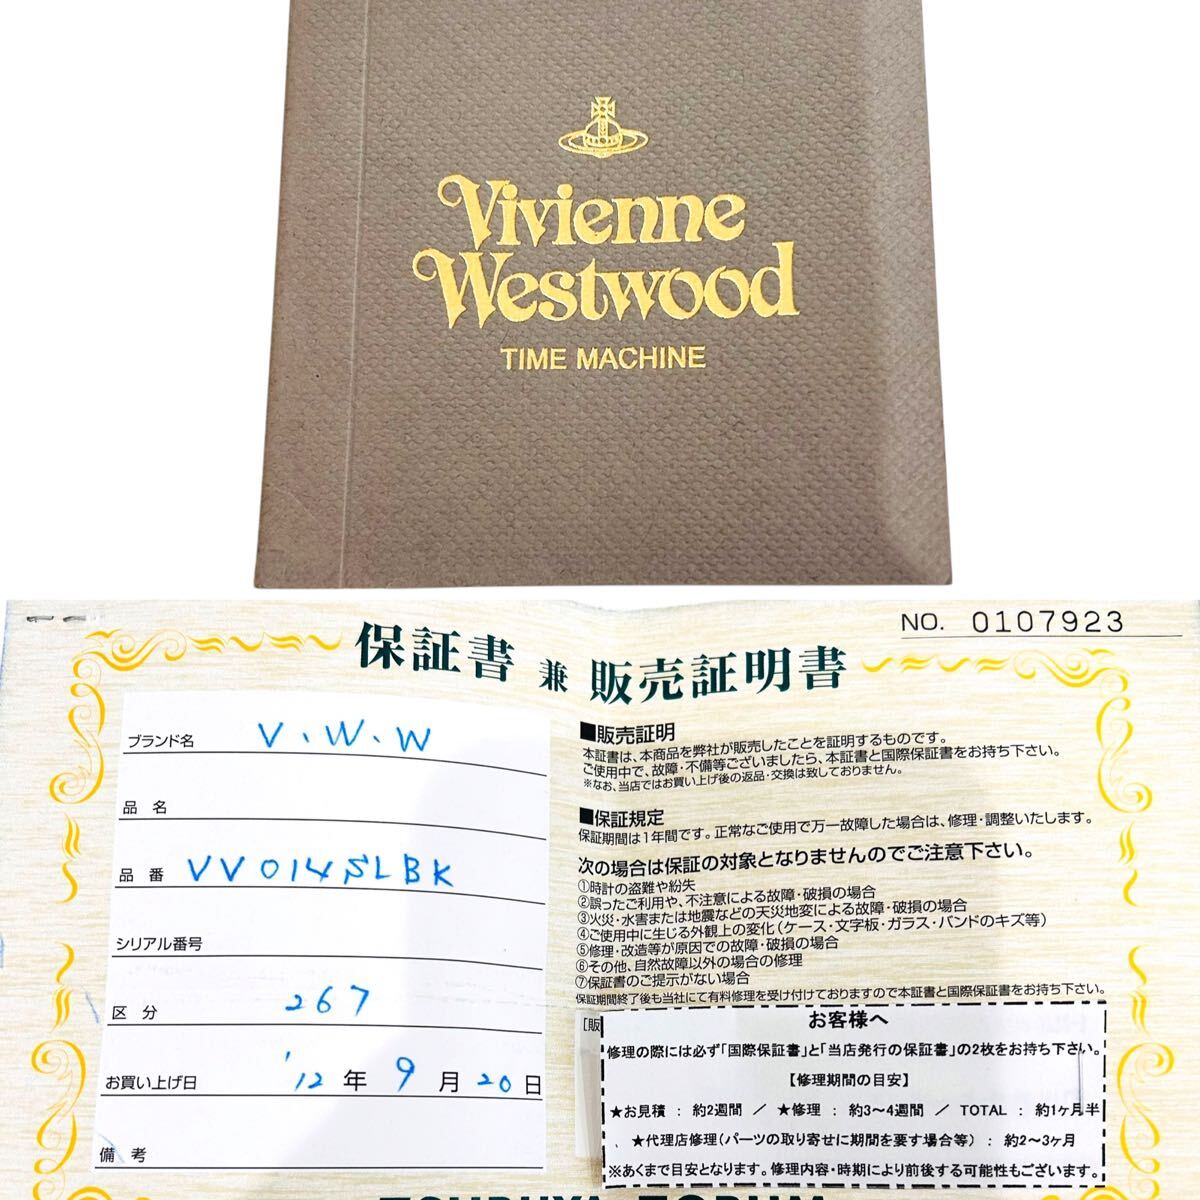 Vivienne
Westwood
TIME MACHINE
NO. 0107923
保証書 兼 販売証明書
ブランド名 V.W.W
品 名
品 番 VV014SLBK
シリアル番号
区 分 267
お買い上げ日 '12 年 9 月 20 日
備 考
■販売証明
本証書は、本商品を弊社が販売したことを証明するものです。
ご使用中で、故障・不備等ございましたら、本証書と国際保証書をお持ち下さい。
※なお、当店ではお買い上げ後の返品・交換は致しておりません。
■保証規定
保証期間は1年間です。正常なご使用で万一故障した場合は、修理・調整いたします。
次の場合は保証の対象となりませんのでご注意下さい。
①時計の盗難や紛失
②誤ったご利用や、不注意による故障・破損の場合
③火災・水害または地震などの天災地変による故障・破損の場合
④ご使用中に生じる外観上の変化(ケース・文字板・ガラス・バンドのキズ等)
⑤修理・改造等が原因での故障・破損の場合
⑥その他、自然故障以外の場合の修理
⑦保証書のご提示がない場合
保証期間終了後も当社にて有料修理を受け付けておりますので本証書と国際保証書をお持ち下さい。
[販
お客様へ
修理の際には必ず「国際保証書」と「当店発行の保証書」の2枚をお持ち下さい。
【修理期間の目安】
★お見積 : 約2週間 / ★修理 : 約3～4週間 / TOTAL : 約1ヶ月半
★代理店修理(パーツの取り寄せに期間を要す場合等) : 約2～3ヶ月
※あくまで目安となります。修理内容・時期により前後する可能性もございます。